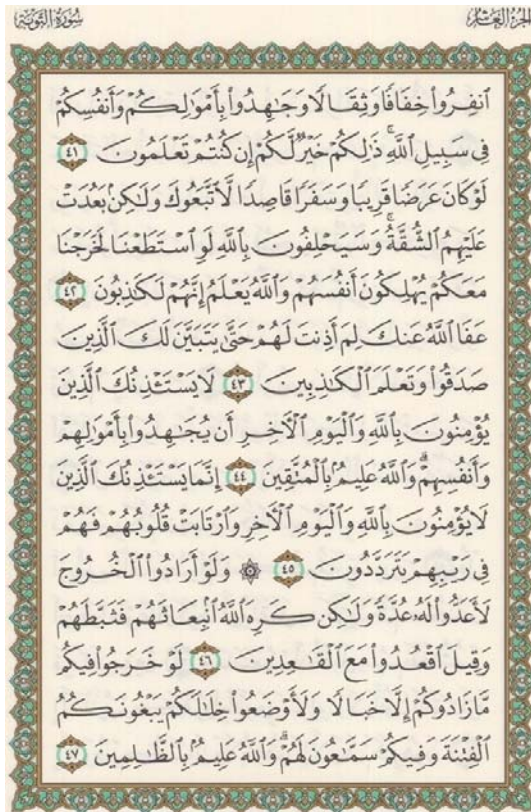 الجزء العاشر
سورة التوبة
انفِرُوا۟ خِفَافًا وَثِقَالًا وَجَـٰهِدُوا۟ بِأَمْوَٰلِكُمْ وَأَنفُسِكُمْ
فِى سَبِيلِ ٱللَّهِ ۚ ذَٰلِكُمْ خَيْرٌ لَّكُمْ إِن كُنتُمْ تَعْلَمُونَ ٤١
لَوْ كَانَ عَرَضًا قَرِيبًا وَسَفَرًا قَاصِدًا لَّٱتَّبَعُوكَ وَلَـٰكِنۢ بَعُدَتْ
عَلَيْهِمُ ٱلشُّقَّةُ ۚ وَسَيَحْلِفُونَ بِٱللَّهِ لَوِ ٱسْتَطَعْنَا لَخَرَجْنَا
مَعَكُمْ يُهْلِكُونَ أَنفُسَهُمْ وَٱللَّهُ يَعْلَمُ إِنَّهُمْ لَكَـٰذِبُونَ ٤٢
عَفَا ٱللَّهُ عَنكَ لِمَ أَذِنتَ لَهُمْ حَتَّىٰ يَتَبَيَّنَ لَكَ ٱلَّذِينَ
صَدَقُوا۟ وَتَعْلَمَ ٱلْكَـٰذِبِينَ ٤٣ لَا يَسْتَـْٔذِنُكَ ٱلَّذِينَ
يُؤْمِنُونَ بِٱللَّهِ وَٱلْيَوْمِ ٱلْـَٔاخِرِ أَن يُجَـٰهِدُوا۟ بِأَمْوَٰلِهِمْ
وَأَنفُسِهِمْ ۗ وَٱللَّهُ عَلِيمٌۢ بِٱلْمُتَّقِينَ ٤٤ إِنَّمَا يَسْتَـْٔذِنُكَ ٱلَّذِينَ
لَا يُؤْمِنُونَ بِٱللَّهِ وَٱلْيَوْمِ ٱلْـَٔاخِرِ وَٱرْتَابَتْ قُلُوبُهُمْ فَهُمْ
فِى رَيْبِهِمْ يَتَرَدَّدُونَ ٤٥ ۞ وَلَوْ أَرَادُوا۟ ٱلْخُرُوجَ
لَأَعَدُّوا۟ لَهُۥ عُدَّةً وَلَـٰكِن كَرِهَ ٱللَّهُ ٱنۢبِعَاثَهُمْ فَثَبَّطَهُمْ
وَقِيلَ ٱقْعُدُوا۟ مَعَ ٱلْقَـٰعِدِينَ ٤٦ لَوْ خَرَجُوا۟ فِيكُم
مَّا زَادُوكُمْ إِلَّا خَبَالًا وَلَأَوْضَعُوا۟ خِلَـٰلَكُمْ يَبْغُونَكُمُ
ٱلْفِتْنَةَ وَفِيكُمْ سَمَّـٰعُونَ لَهُمْ ۗ وَٱللَّهُ عَلِيمٌۢ بِٱلظَّـٰلِمِينَ ٤٧